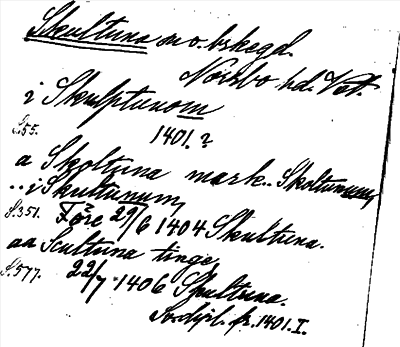 Skultuna sn o. brkegd.
Norrbo hd. Vstm.
i Skulptunom
S.55. 1401.?
a Skoltuna mark.. Skoltunum,
.. i Skultunum,
S.351. Före 29/6 1404 Skultuna.
aa Scultuna tinge,
S.577. 22/7 1406 Skultuna.
Sv. dipl. fr. 1401. I.